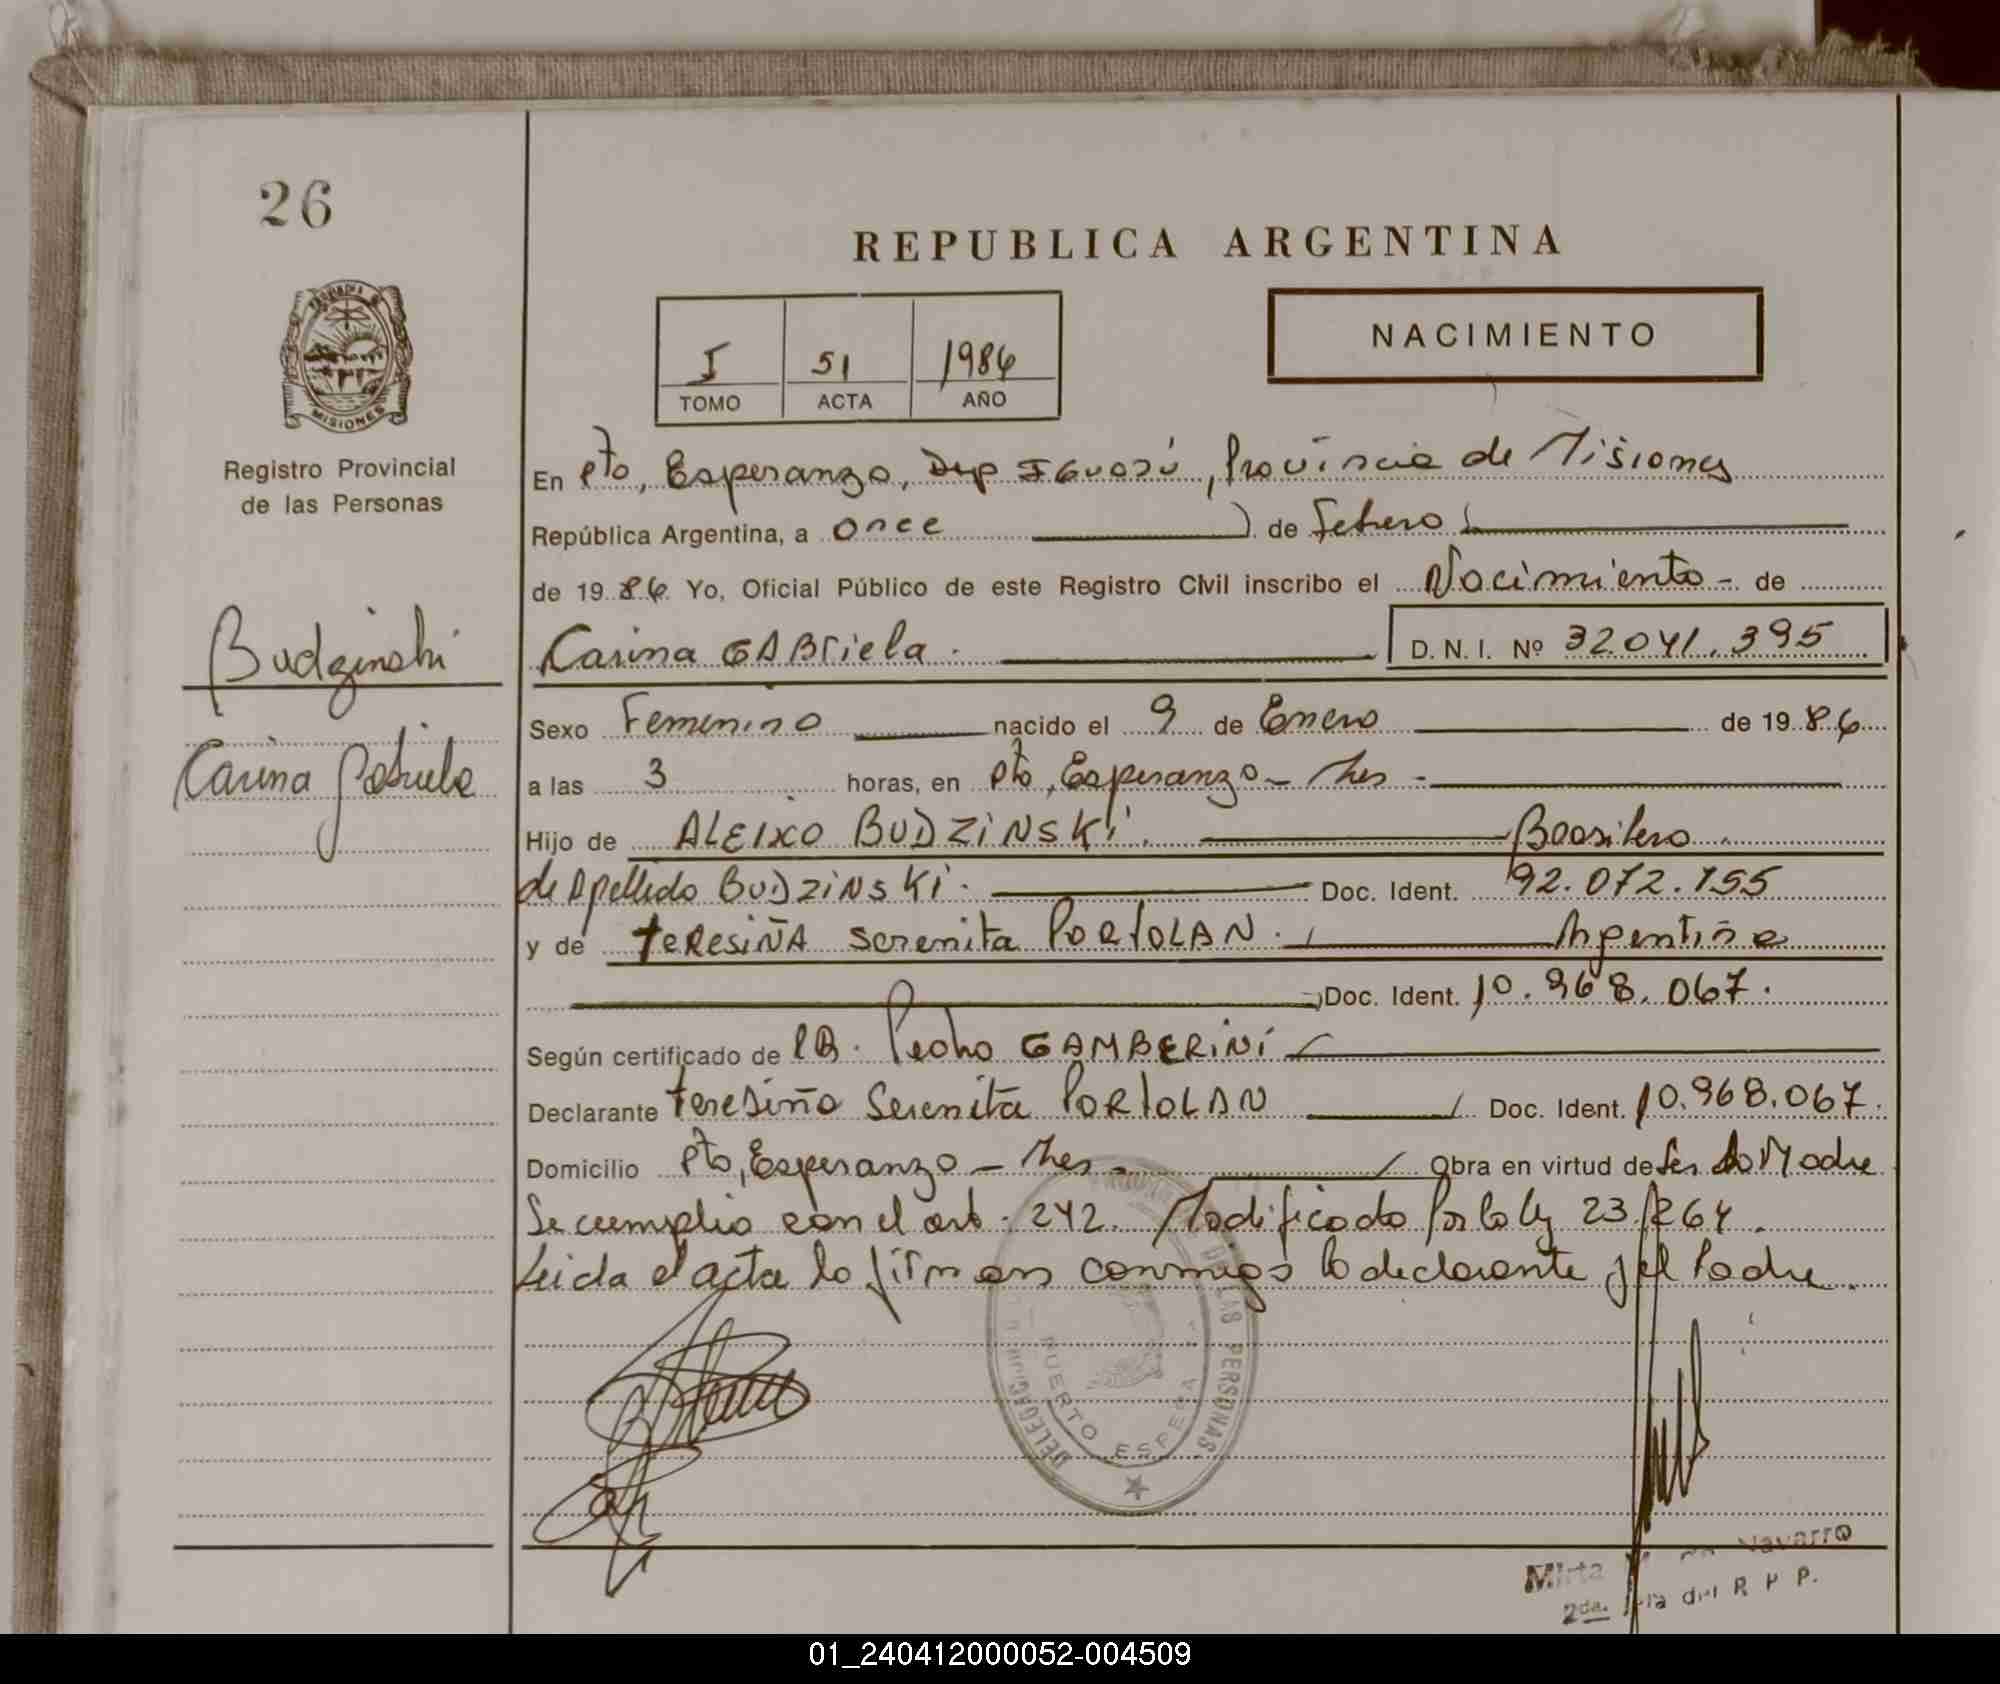 26
REPUBLICA ARGENTINA
I 51 1986
TOMO ACTA AÑO
NACIMIENTO
MISIONES
Registro Provincial
de las Personas
Budzinski
Carina Gabriela
En Pto, Esperanza, Dep IGuazú, Provincia de Misiones
República Argentina, a once de Febrero
de 1986 Yo, Oficial Público de este Registro Civil inscribo el Nacimiento - de
Carina GABriela. D. N. I. Nº 32.041.395
Sexo Femenino nacido el 9 de Enero de 1986
a las 3 horas, en Pto, Esperanza - Mes -
Hijo de ALEIXO BUDZINSKI. Brasilero
de Apellido BUDZINSKI. Doc. Ident. 92.072.155
y de TERESIÑA Serenita PORTOLAN. Argentina
Doc. Ident. 10.968.067.
Según certificado de Pedro GAMBERINI
Declarante Teresiña Serenita PORTOLAN Doc. Ident. 10.968.067.
Domicilio Pto, Esperanza - Mes - Obra en virtud de Ser la Madre
Se cumplio con el art. 242. Modificado Por la ley 23.264.
Leida el acta la firman conmigo la declarante y el Padre.
DE LAS PERSONAS
PUERTO ESPERA
Mirta Navarro
2da. del R P P.
01_240412000052-004509